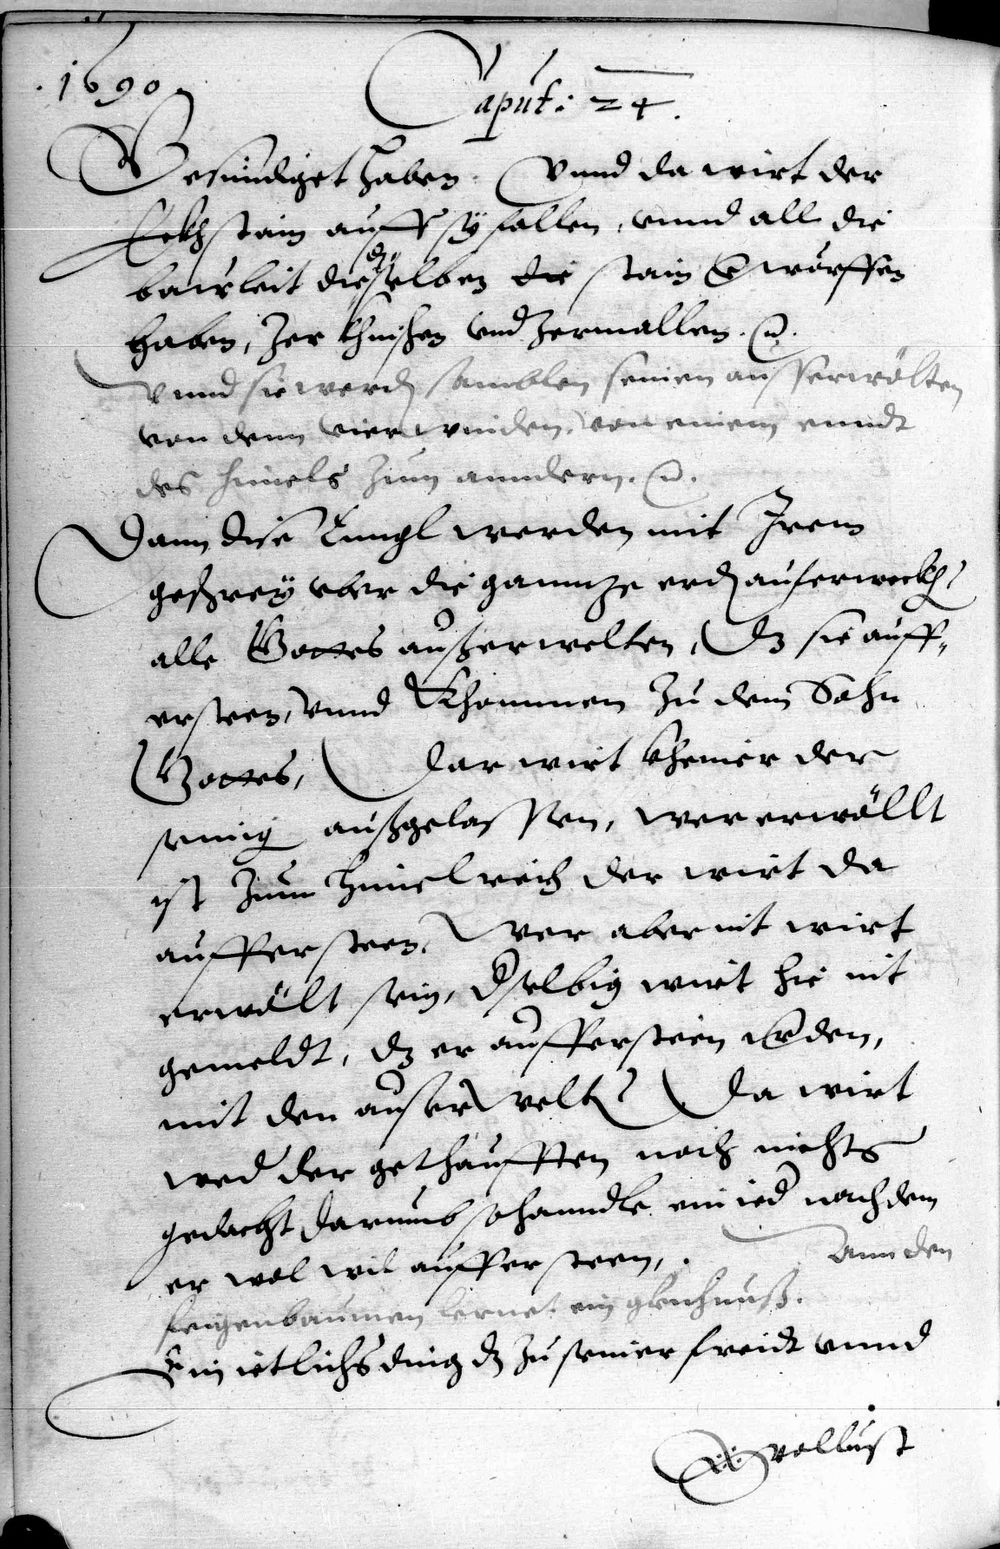 1690
Caput: 24.
Gesündiget haben. Vnnd da wirt der
Eckhstain auff sÿ fallen, vnnd all die
bauleit dieselben die stain verworffen
haben, Zer khnischen vnd Zermallen. (etc).
Vnnd sie werden samblen seinen ausserwölten
von denn vier winden, von einem enndt
des himels Zum anndern. (etc).
Dann dise Enngl werden mit Irem
geschrey vber die ganntze erdt auferweckhen
alle Gottes ausserwelten, Dz sie auff„
ersteen, vnnd Khommen Zu dem Sohn
Gottes, Dar wirt kheiner der
seinig außgelassen, wer erwöllt
ist Zum Himelreich der wirt da
auffersteen, Wer aber nit wirt
erwölt sein, derselbig wirt hie nit
gemeldt, dz er aufferstein werden,
mit den ausserwelten Da wirt
wed der gethaufften noch nichts
gedacht darumb so hanndle ein ieder nach dem
er wol wil auffersteen, . Ann den
feigenbaumen lernet ein gleichnuß.
Ein ietlichs ding dz zu seiner freidt vnnd
wollust